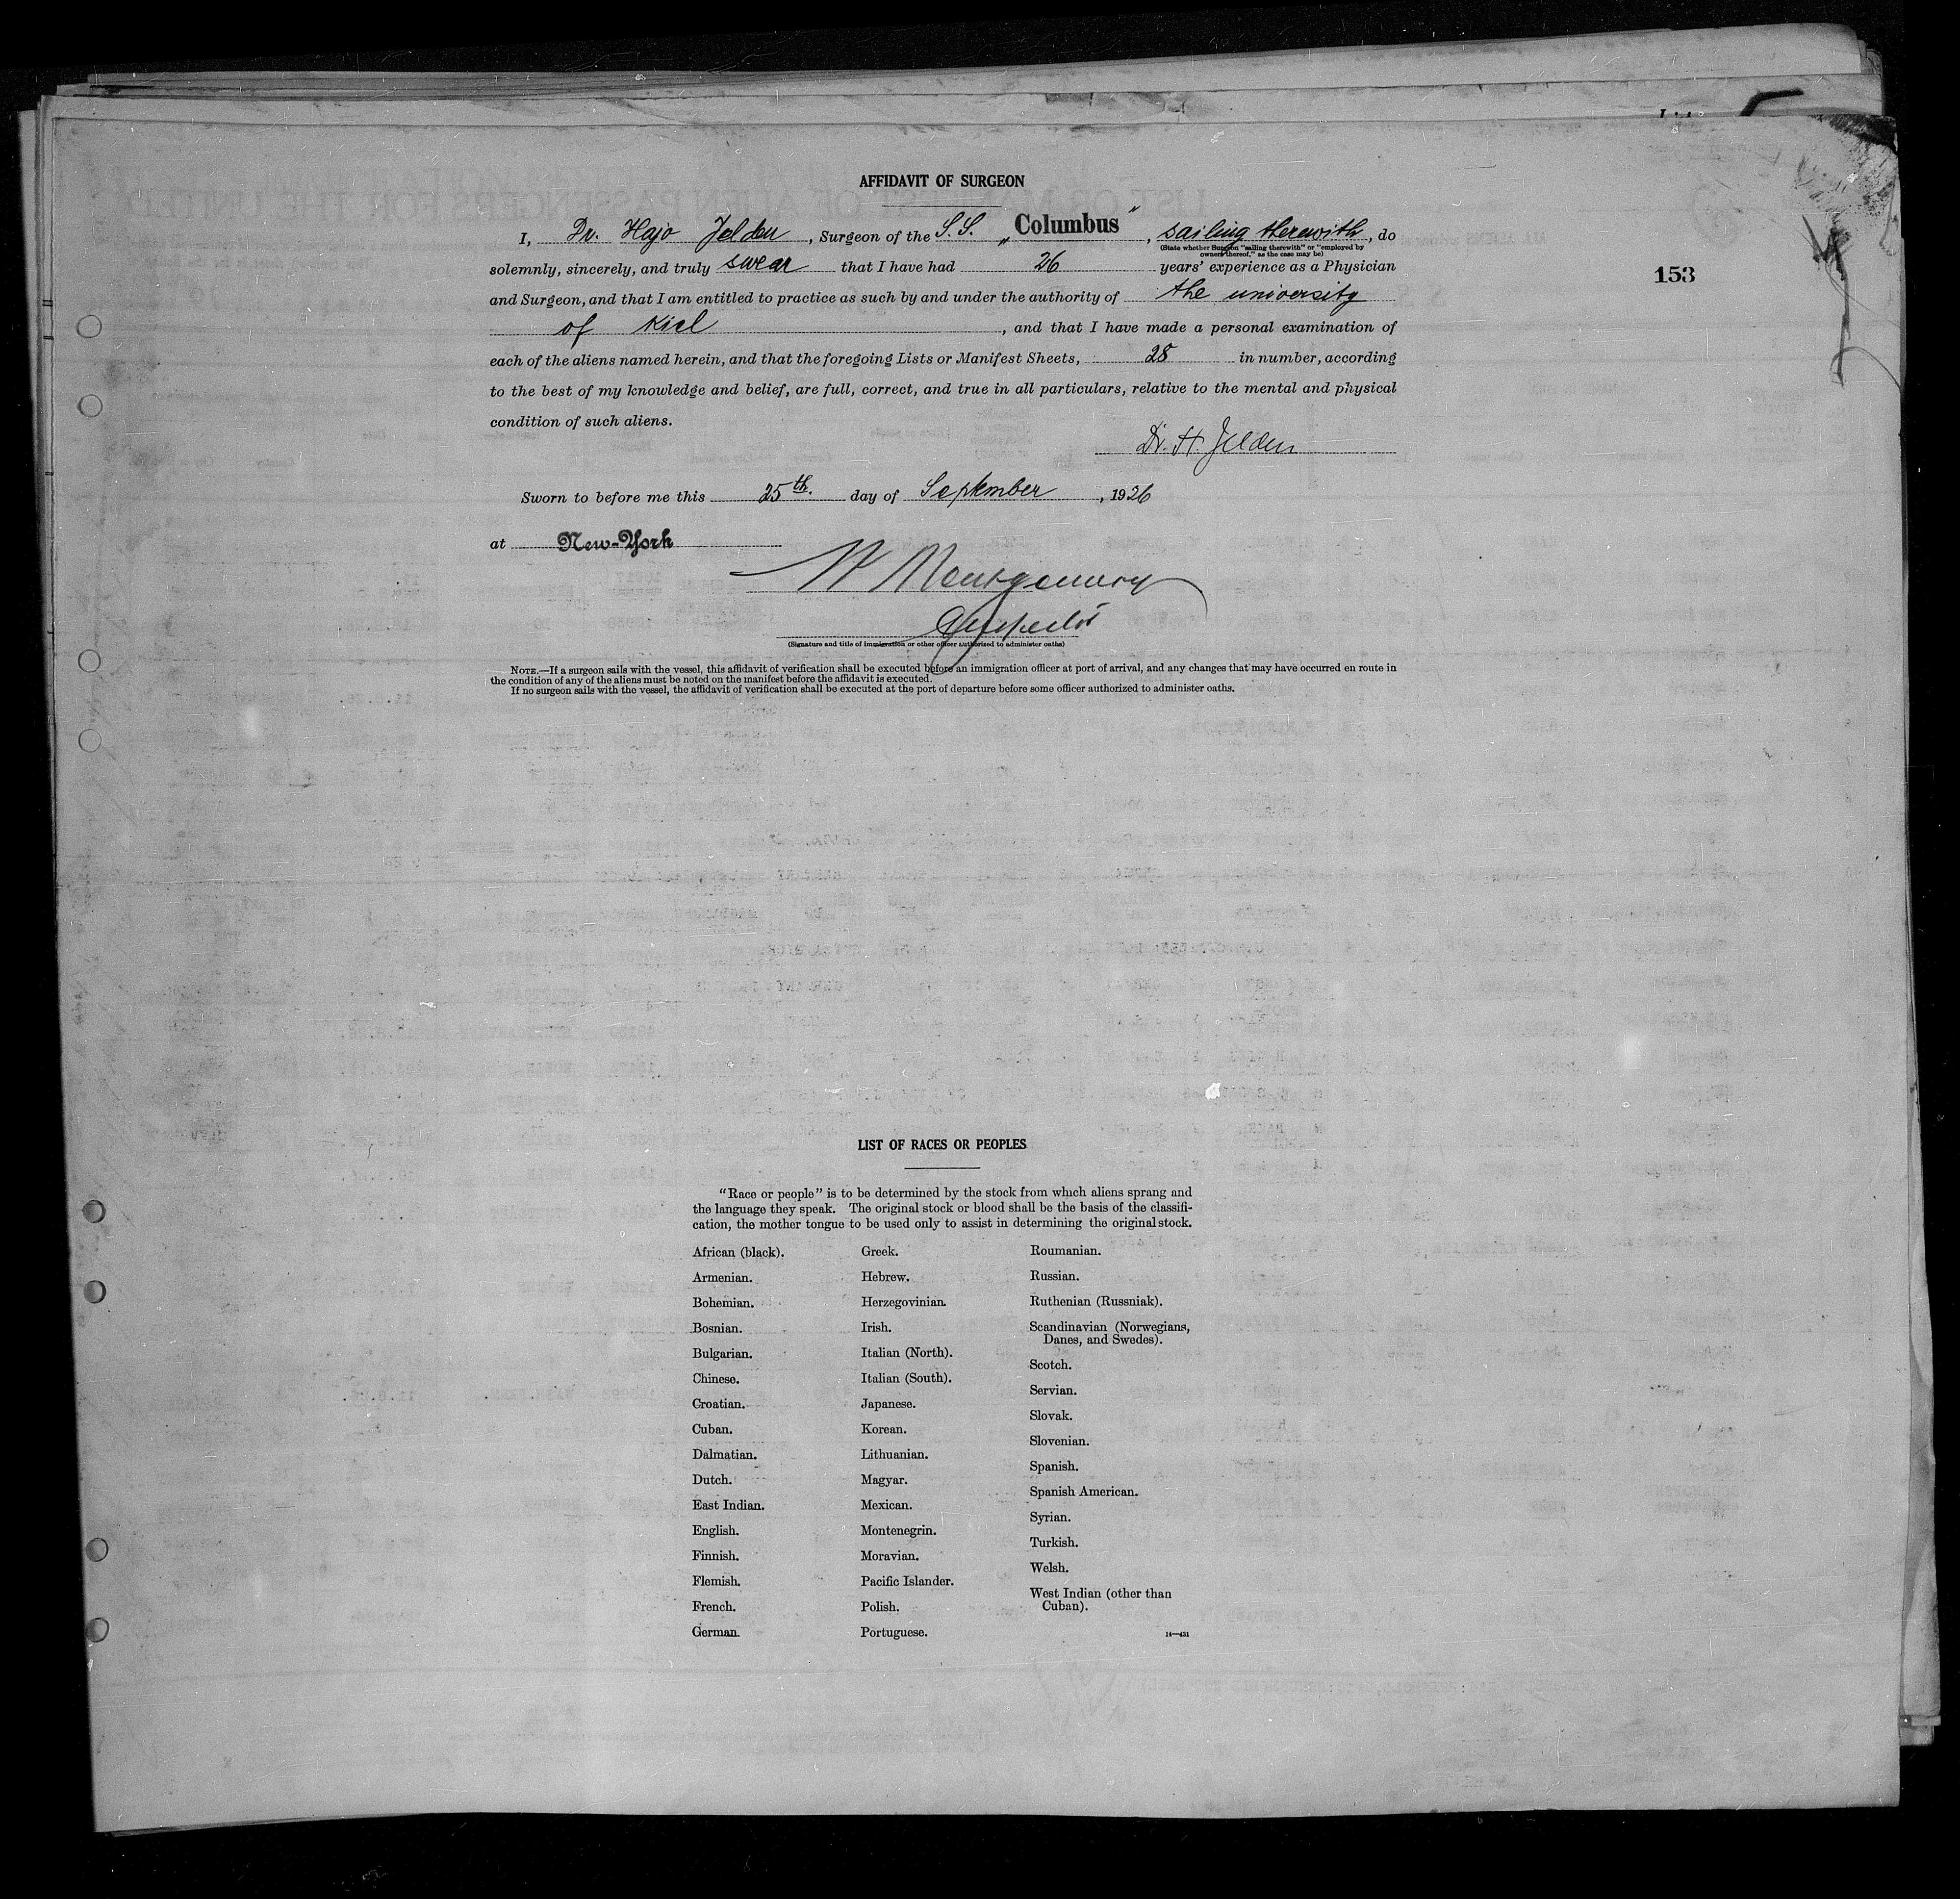 AFFIDAVIT OF SURGEON
I, Dr. Hajo Jelden, Surgeon of the S.S. „Columbus", sailing therewith, do
(State whether Surgeon "sailing therewith" or "employed by
owners thereof," as the case may be)
solemnly, sincerely, and truly swear that I have had 26 years' experience as a Physician
153
and Surgeon, and that I am entitled to practice as such by and under the authority of the university
of Kiel, and that I have made a personal examination of
each of the aliens named herein, and that the foregoing Lists or Manifest Sheets, 28 in number, according
to the best of my knowledge and belief, are full, correct, and true in all particulars, relative to the mental and physical
condition of such aliens.
Dr. H. Jelden
Sworn to before me this 25th. day of September, 1926
at New-York
W Montgomery
Inspector
(Signature and title of immigration or other officer authorized to administer oaths)
NOTE.—If a surgeon sails with the vessel, this affidavit of verification shall be executed before an immigration officer at port of arrival, and any changes that may have occurred en route in
the condition of any of the aliens must be noted on the manifest before the affidavit is executed.
If no surgeon sails with the vessel, the affidavit of verification shall be executed at the port of departure before some officer authorized to administer oaths.
LIST OF RACES OR PEOPLES
"Race or people" is to be determined by the stock from which aliens sprang and
the language they speak. The original stock or blood shall be the basis of the classifi-
cation, the mother tongue to be used only to assist in determining the original stock.
African (black).
Armenian.
Bohemian.
Bosnian.
Bulgarian.
Chinese.
Croatian.
Cuban.
Dalmatian.
Dutch.
East Indian.
English.
Finnish.
Flemish.
French.
German.
Greek.
Hebrew.
Herzegovinian.
Irish.
Italian (North).
Italian (South).
Japanese.
Korean.
Lithuanian.
Magyar.
Mexican.
Montenegrin.
Moravian.
Pacific Islander.
Polish.
Portuguese.
Roumanian.
Russian.
Ruthenian (Russniak).
Scandinavian (Norwegians,
Danes, and Swedes).
Scotch.
Servian.
Slovak.
Slovenian.
Spanish.
Spanish American.
Syrian.
Turkish.
Welsh.
West Indian (other than
Cuban).
14—431